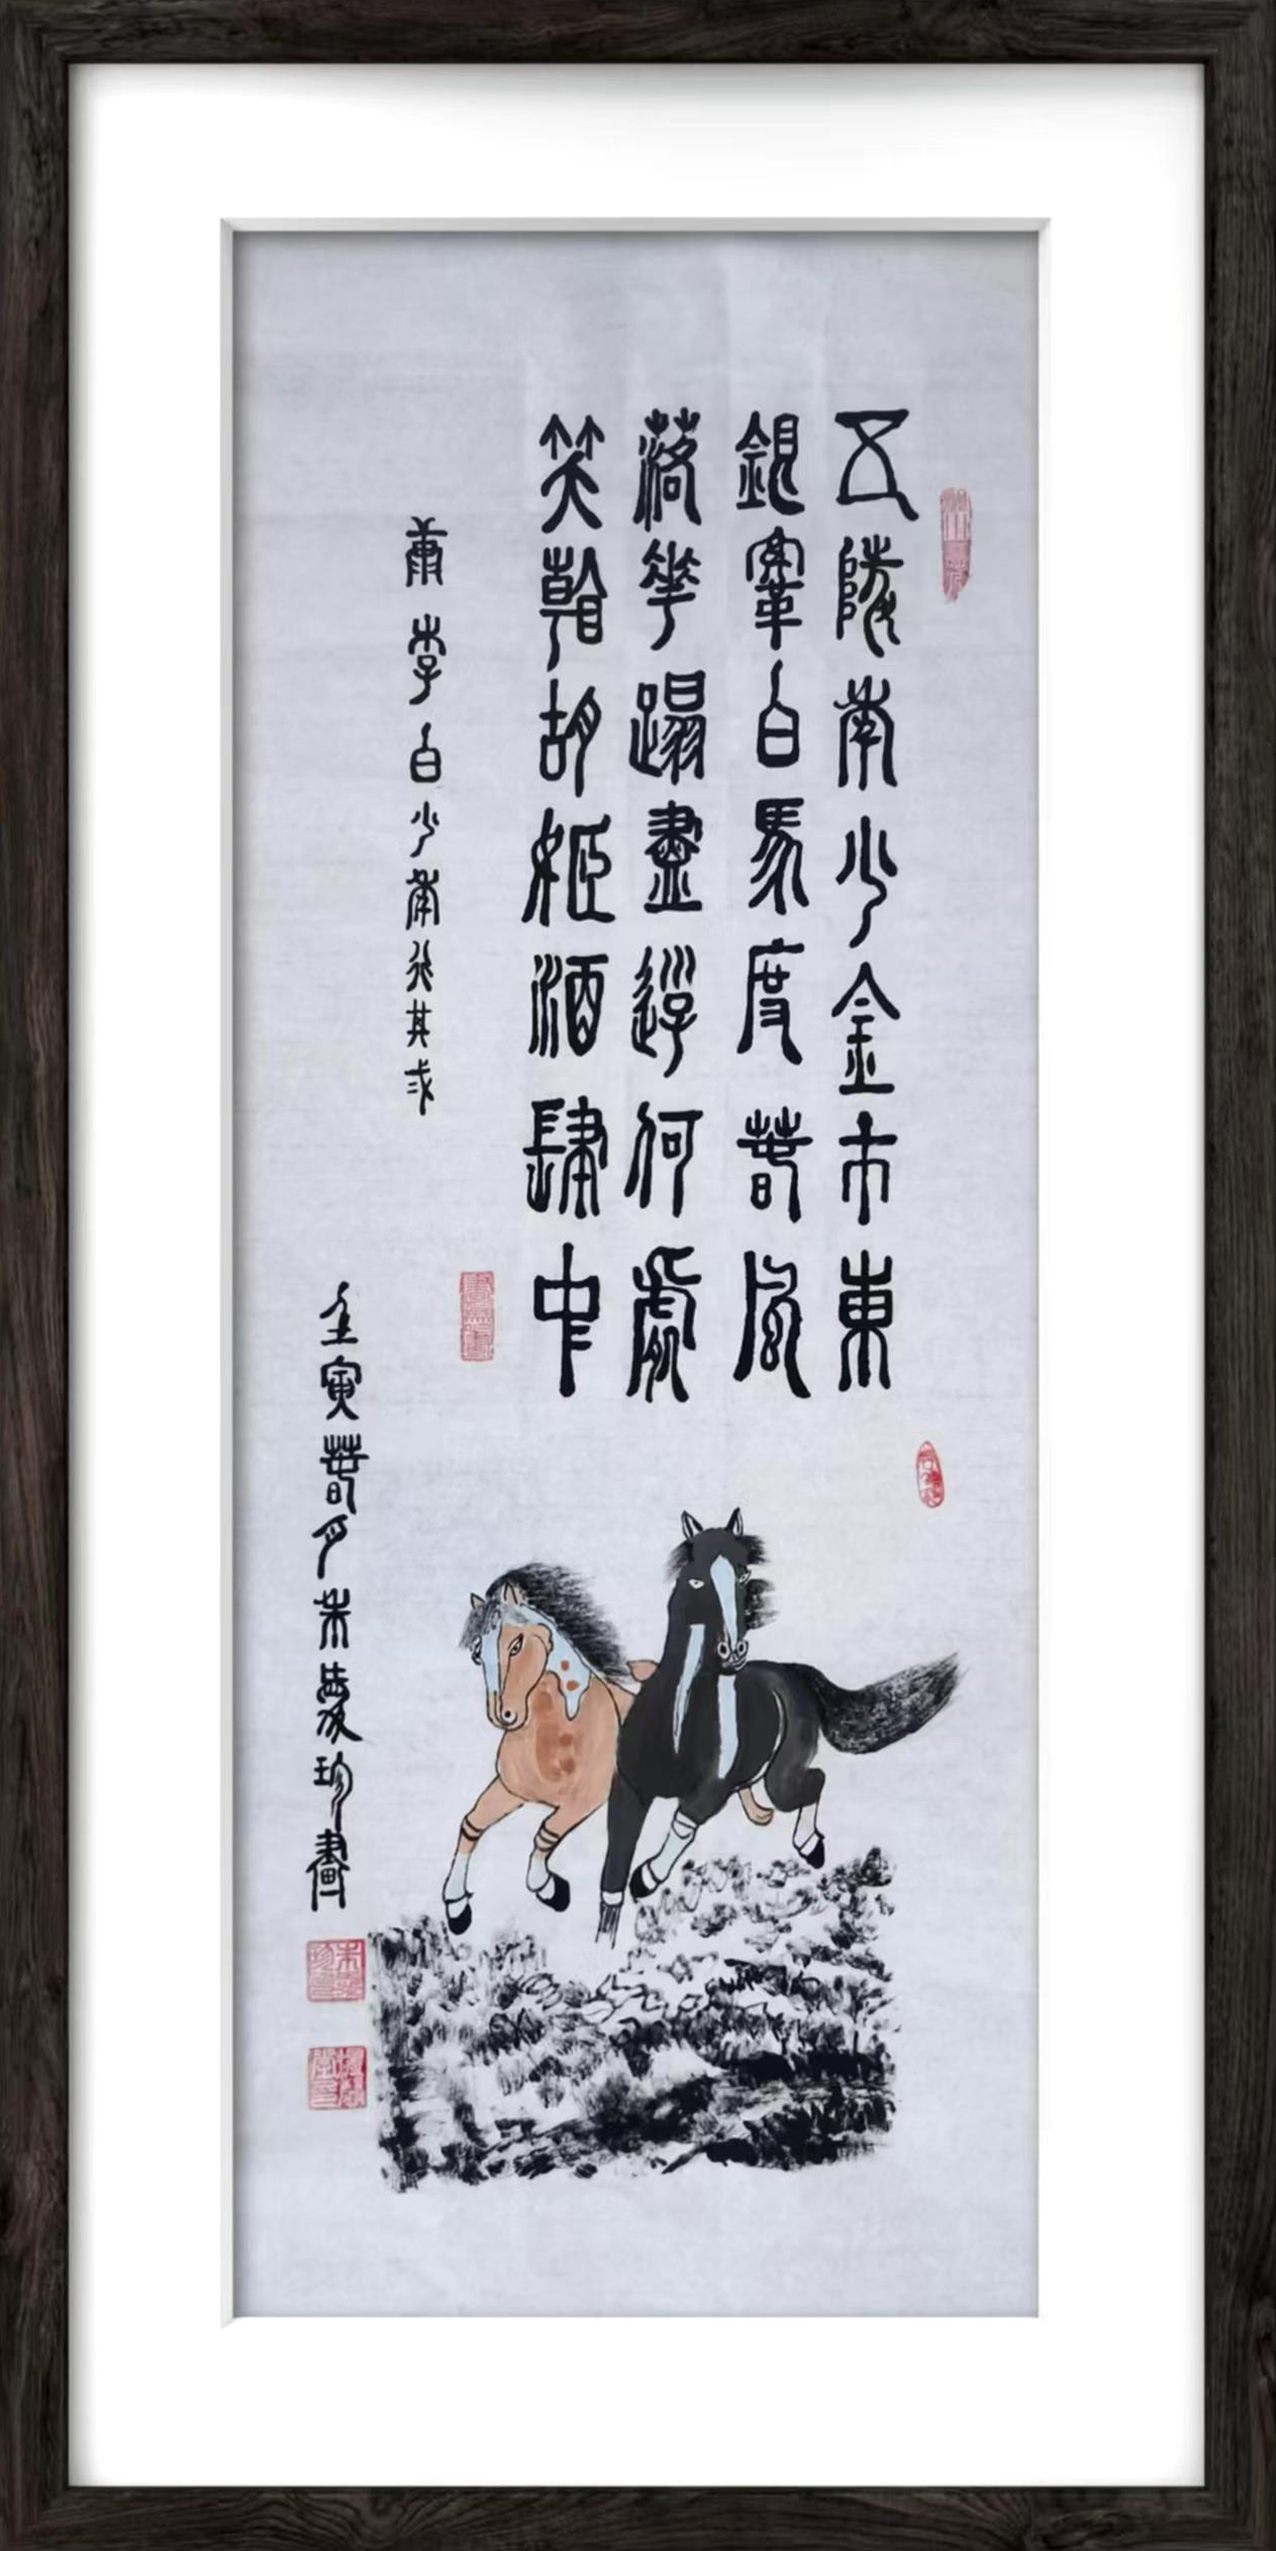 五陵年少金市東
銀鞍白馬度春風
落花蹋盡遊何處
笑胡姬酒肆中
唐李白少年行其弍
壬寅春月朱愛珍畫